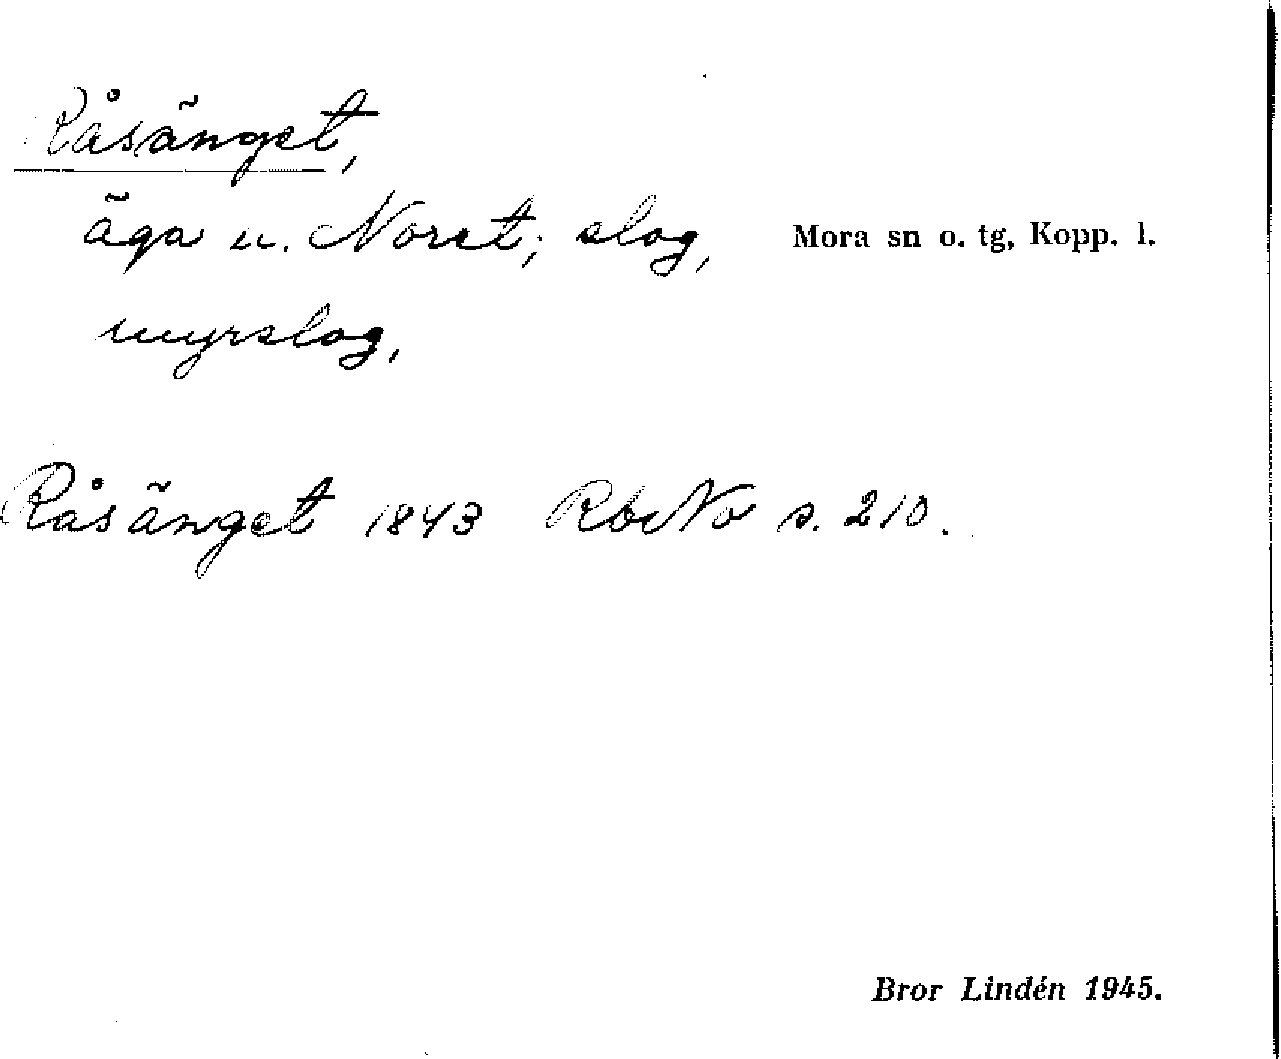 Råsänget,
äga u. Noret; slog, Mora sn o. tg, Kopp. l.
myrslog,
Råsänget 1843 RbNo s. 210.
Bror Lindén 1945.